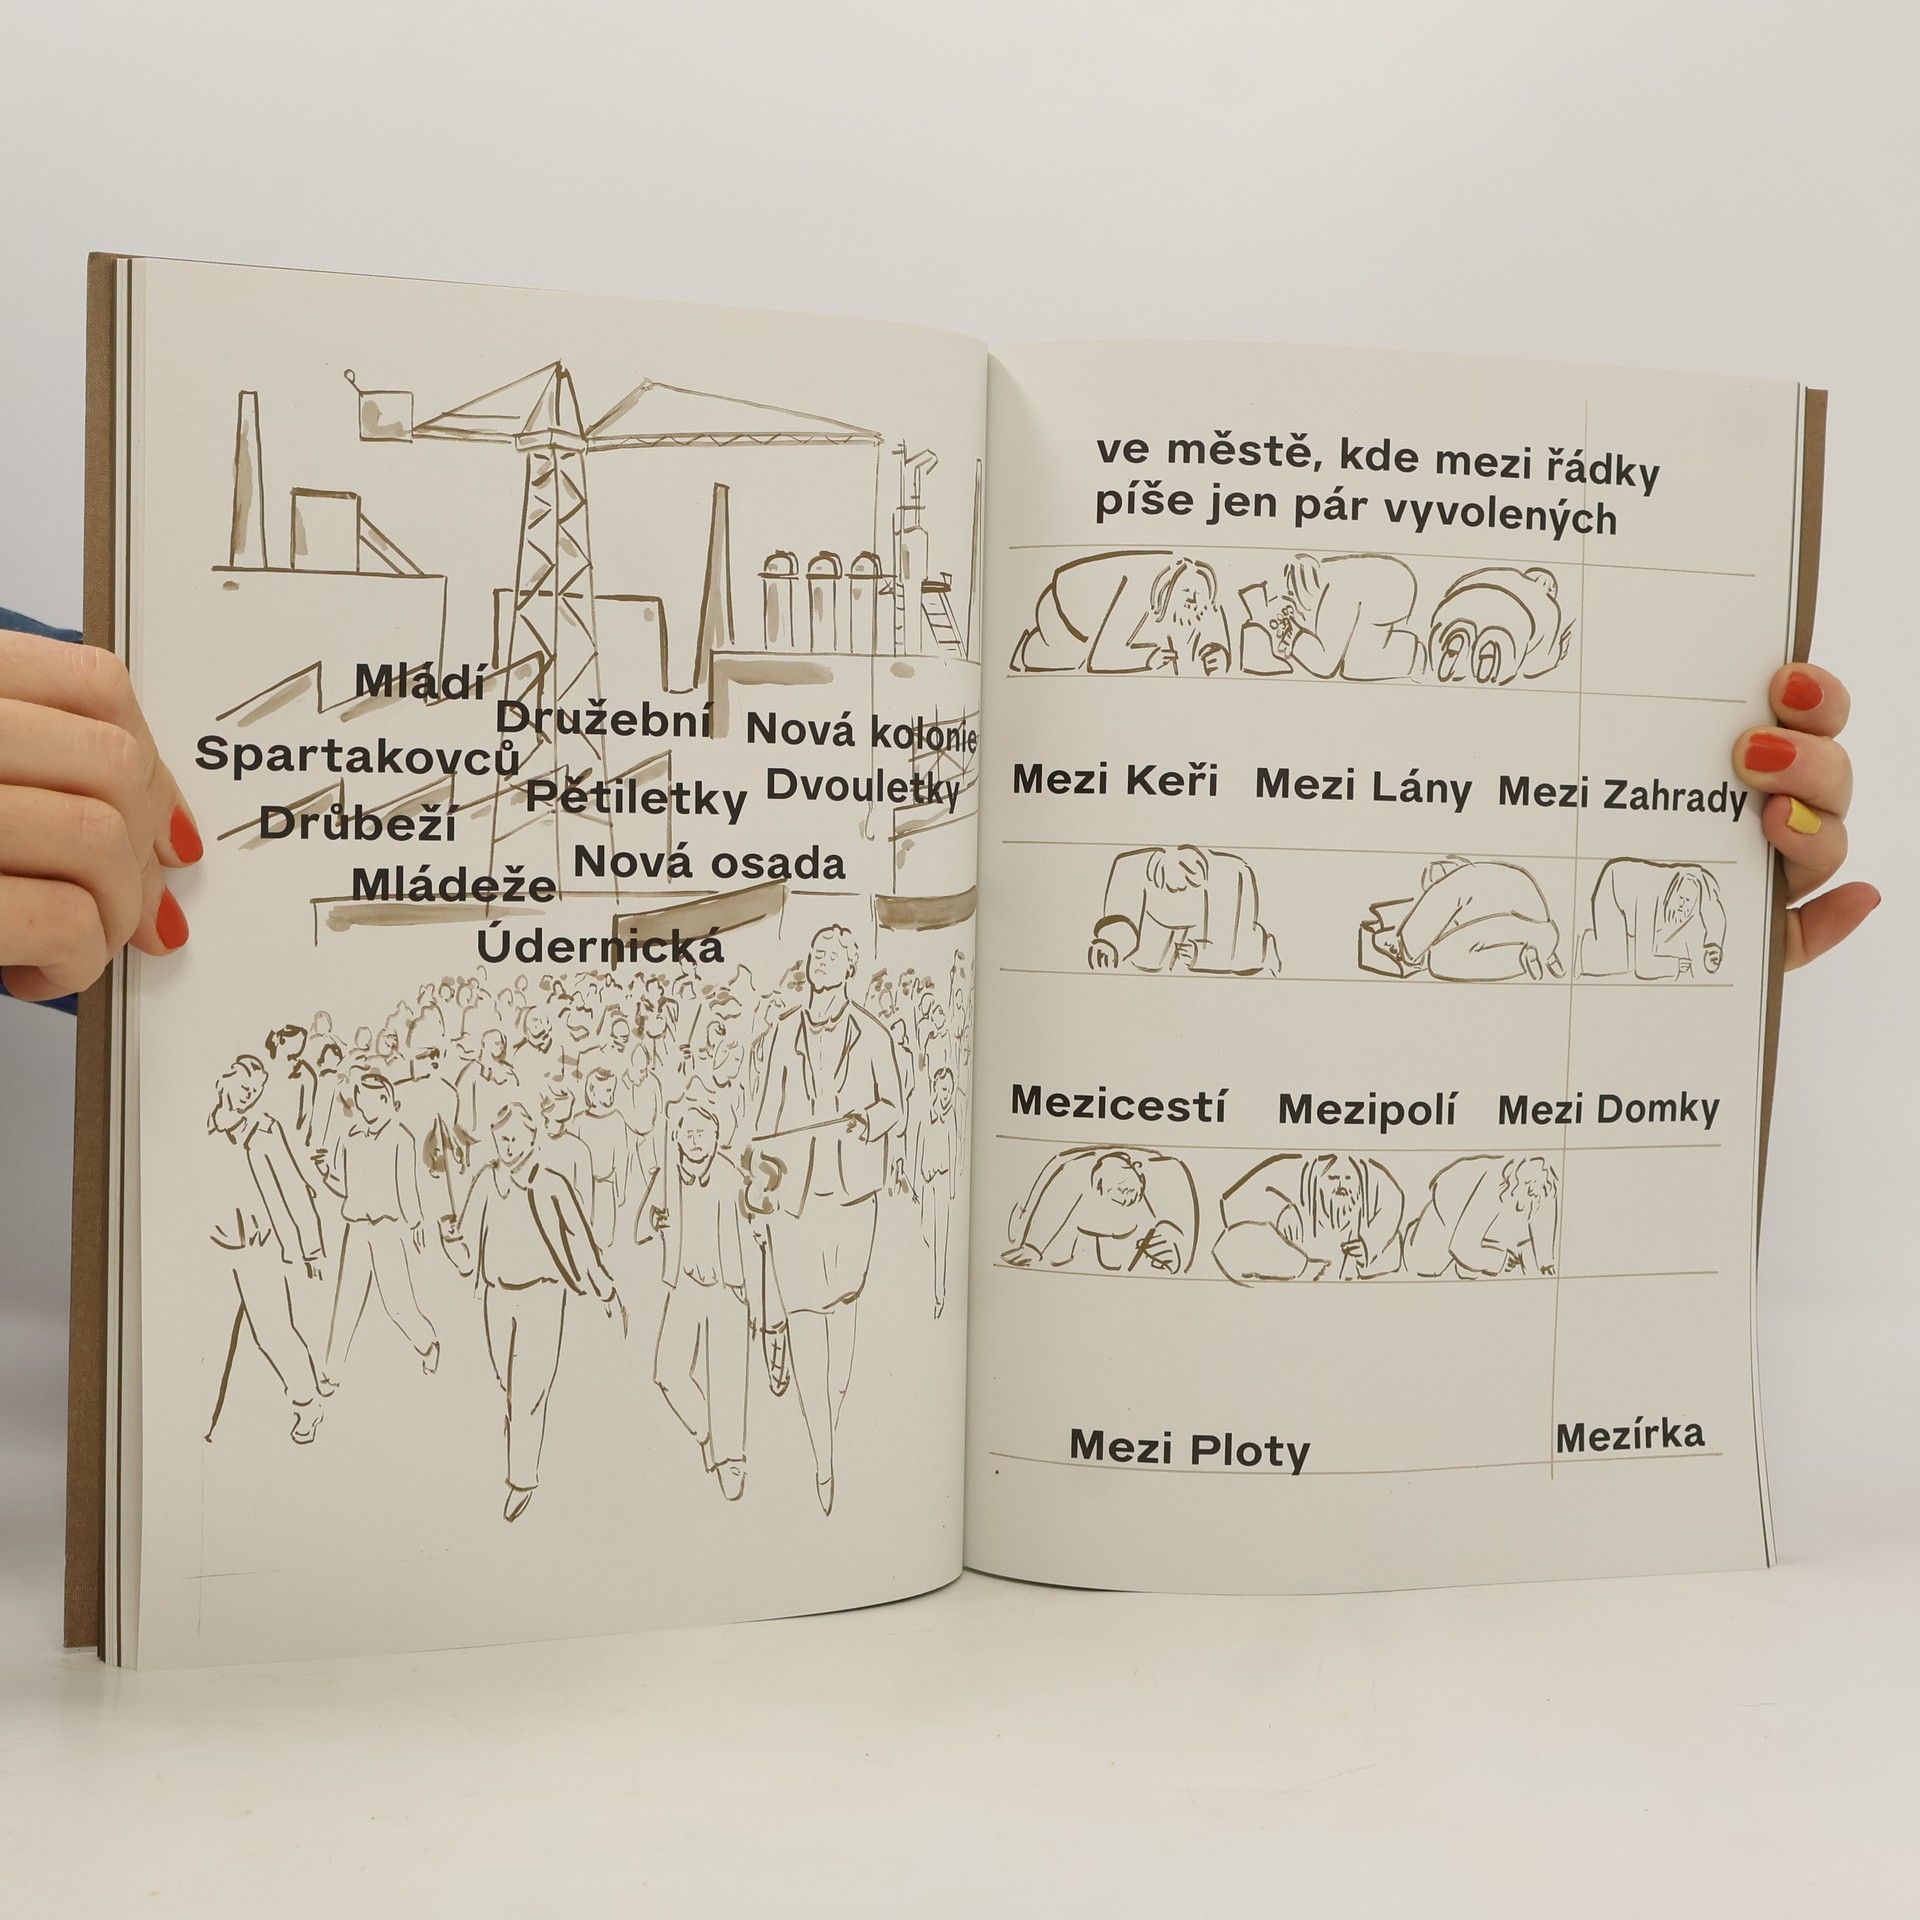 Mládí
Družební
Nová kolonie
Spartakovců
Pětiletky
Dvouletky
Drůbeží
Nová osada
Mládeže
Údernická
ve městě, kde mezi řádky
píše jen pár vyvolených
Mezi Keři Mezi Lány Mezi Zahrady
Mezicestí Mezipolí Mezi Domky
Mezi Ploty Mezírka